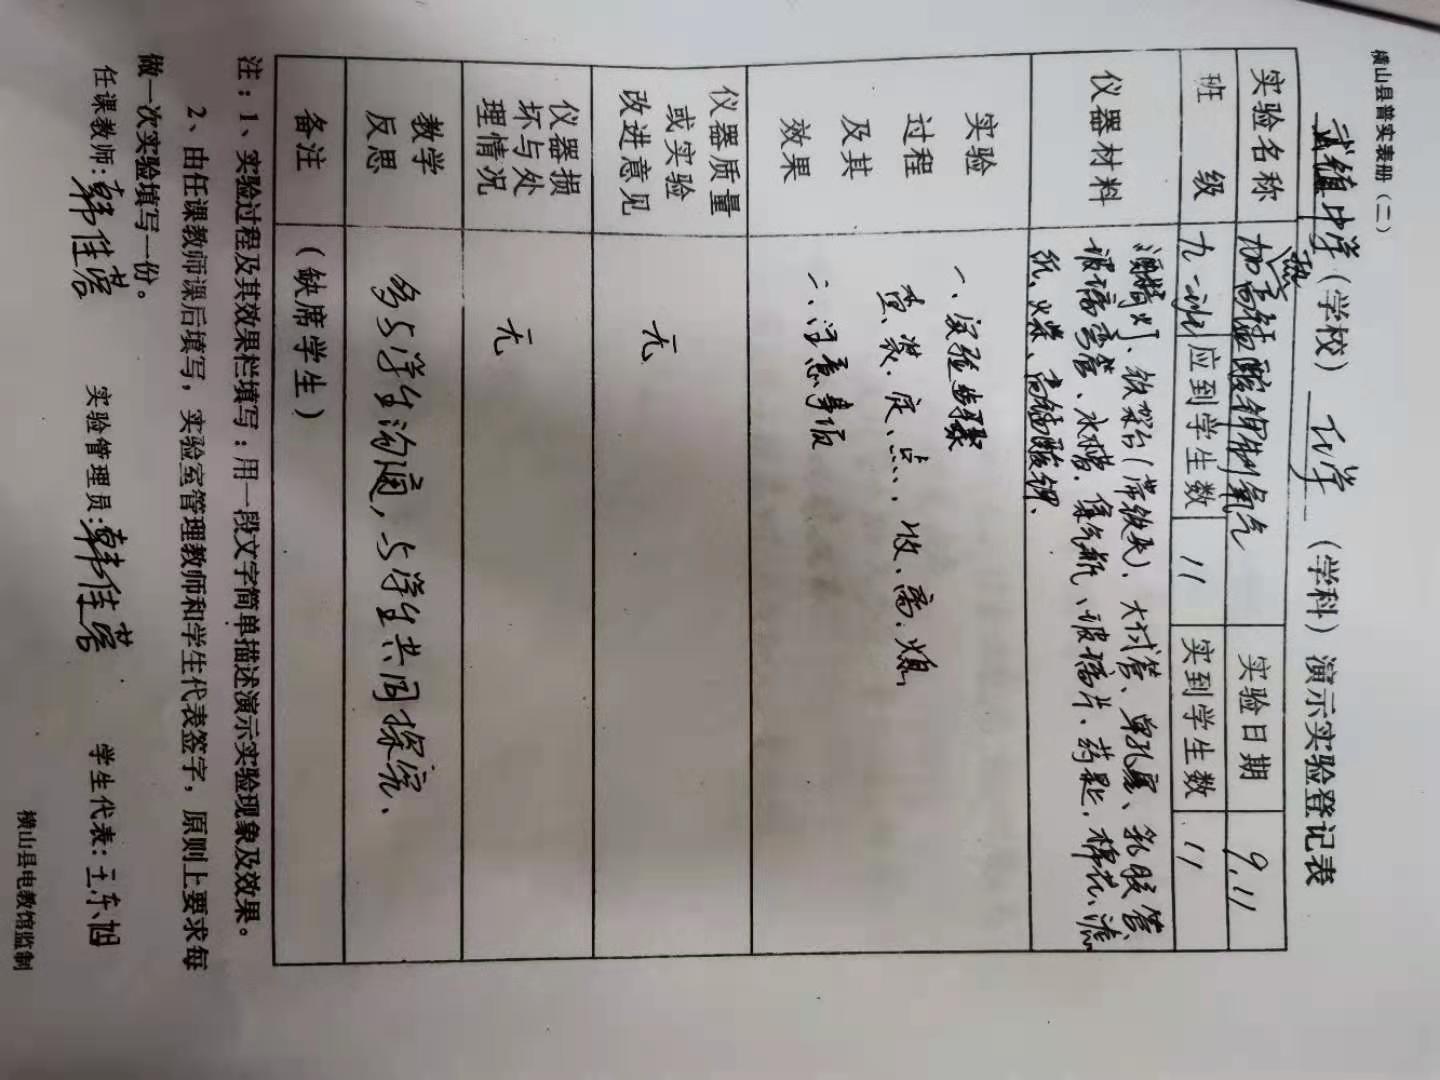 横山县普实表册（二）
武镇中学（学校）化学（学科）演示实验登记表
实验名称 加热高锰酸钾制氧气 实验日期 9.11
班级 九一班 应到学生数 11 实到学生数 11
仪器材料 酒精灯、铁架台（带铁夹）、大试管、单孔塞、乳胶管、
玻璃弯管、水槽、集气瓶、玻璃片、药匙、棉花、滤
纸、火柴、高锰酸钾.
实验
过程
及其
效果
一、实验步骤
查、装、定、点、收、离、熄
二、注意事项
仪器质量
或实验
改进意见
无
仪器损
坏与处
理情况
无
教学
反思
多与学生沟通，与学生共同探究.
备注 （缺席学生）
注：1、实验过程及其效果栏填写：用一段文字简单描述演示实验现象及效果。
2、由任课教师课后填写，实验室管理教师和学生代表签字，原则上要求每
做一次实验填写一份。
任课教师：韩佳蓉 实验管理员：韩佳蓉 学生代表：王东旭
横山县电教馆监制